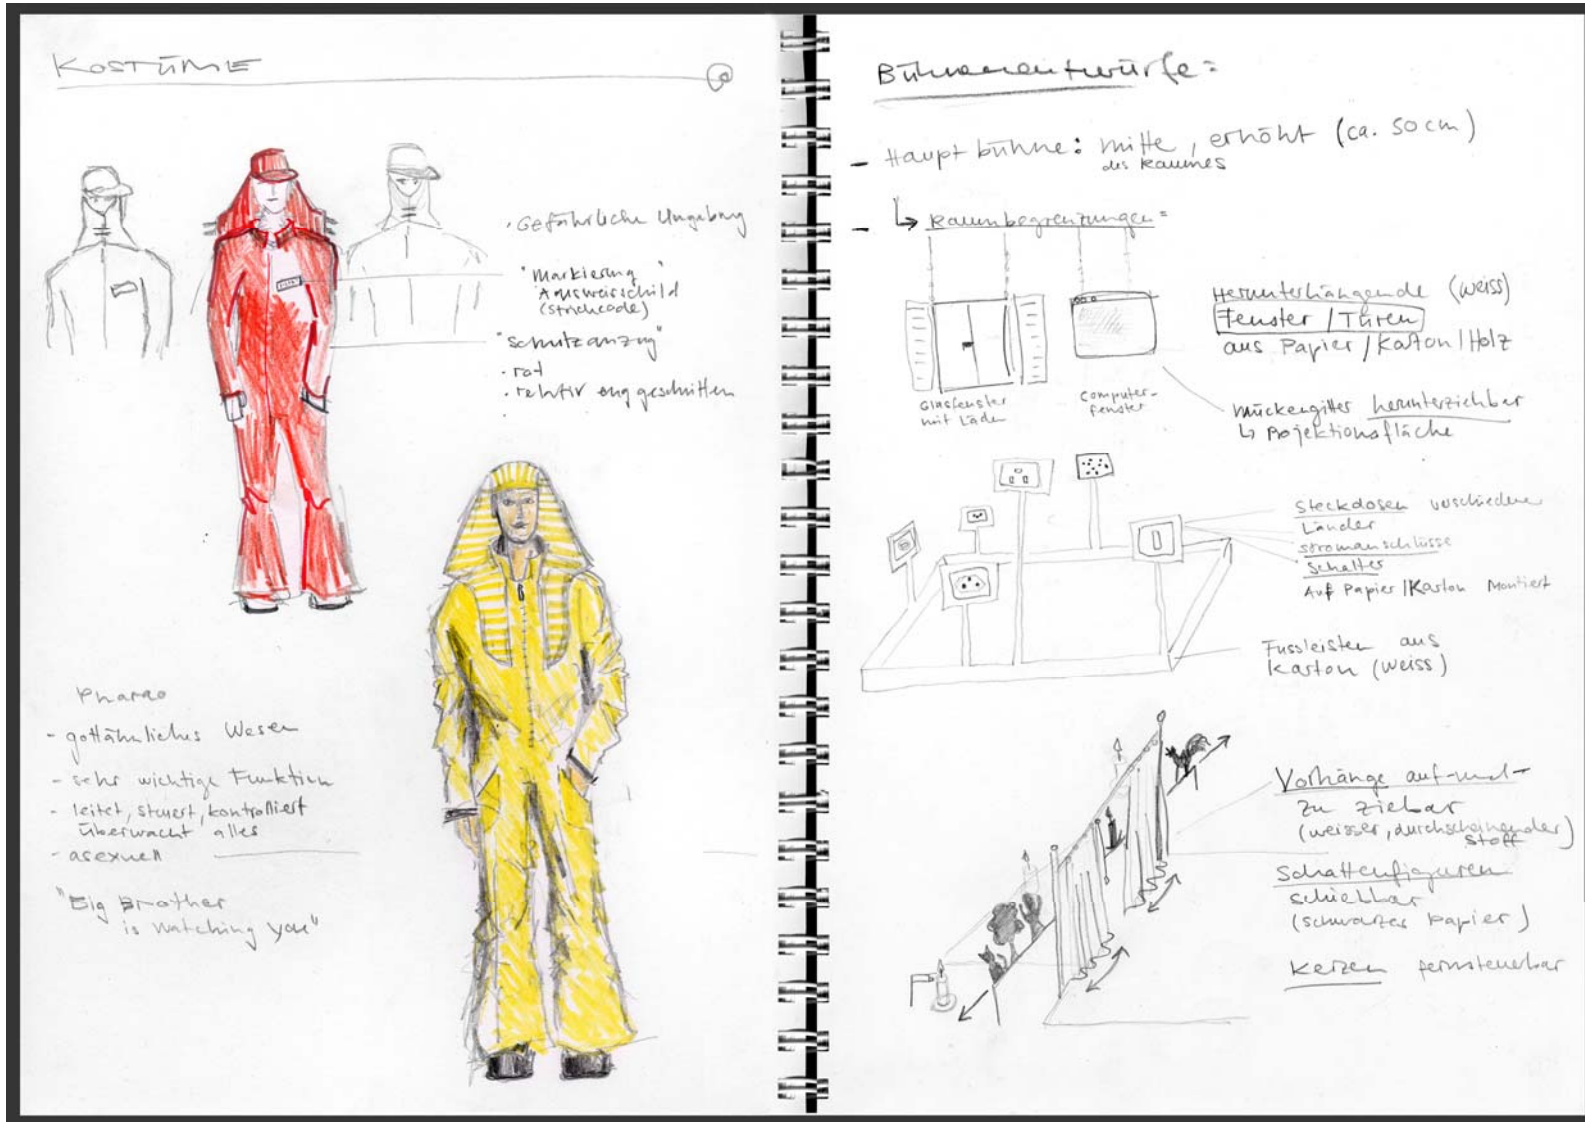 KOSTÜME
· Gefährliche Umgebung
"Markierung"
Ausweisschild
(strichcode)
"Schutzanzug"
· rot
· relativ eng geschnitten
Pharao
- gottähnliches Wesen
- sehr wichtige Funktion
- leitet, steuert, kontrolliert
überwacht alles
- asexuell
"Big Brother
is watching you"
Bühnenentwürfe:
- Hauptbühne: mitte, erhöht (ca. 50cm)
des Raumes
- ↳ Raumbegrenzungen:
Herunterhängende (weiss)
Fenster / Türen
aus Papier / Karton / Holz
Glasfenster
mit Läden
Computer-
fenster
Mückengitter herunterziehbar
↳ Projektionsfläche
Steckdosen verschiedene
Länder
stromanschlüsse
Schalter
Auf Papier / Karton Montiert
Fussleisten aus
Karton (weiss)
Vorhänge auf-und-
zu ziebar
(weisser, durchscheinender
Stoff)
Schattenfiguren
schiebbar
(schwarzes Papier)
Kerzen fernsteuerbar